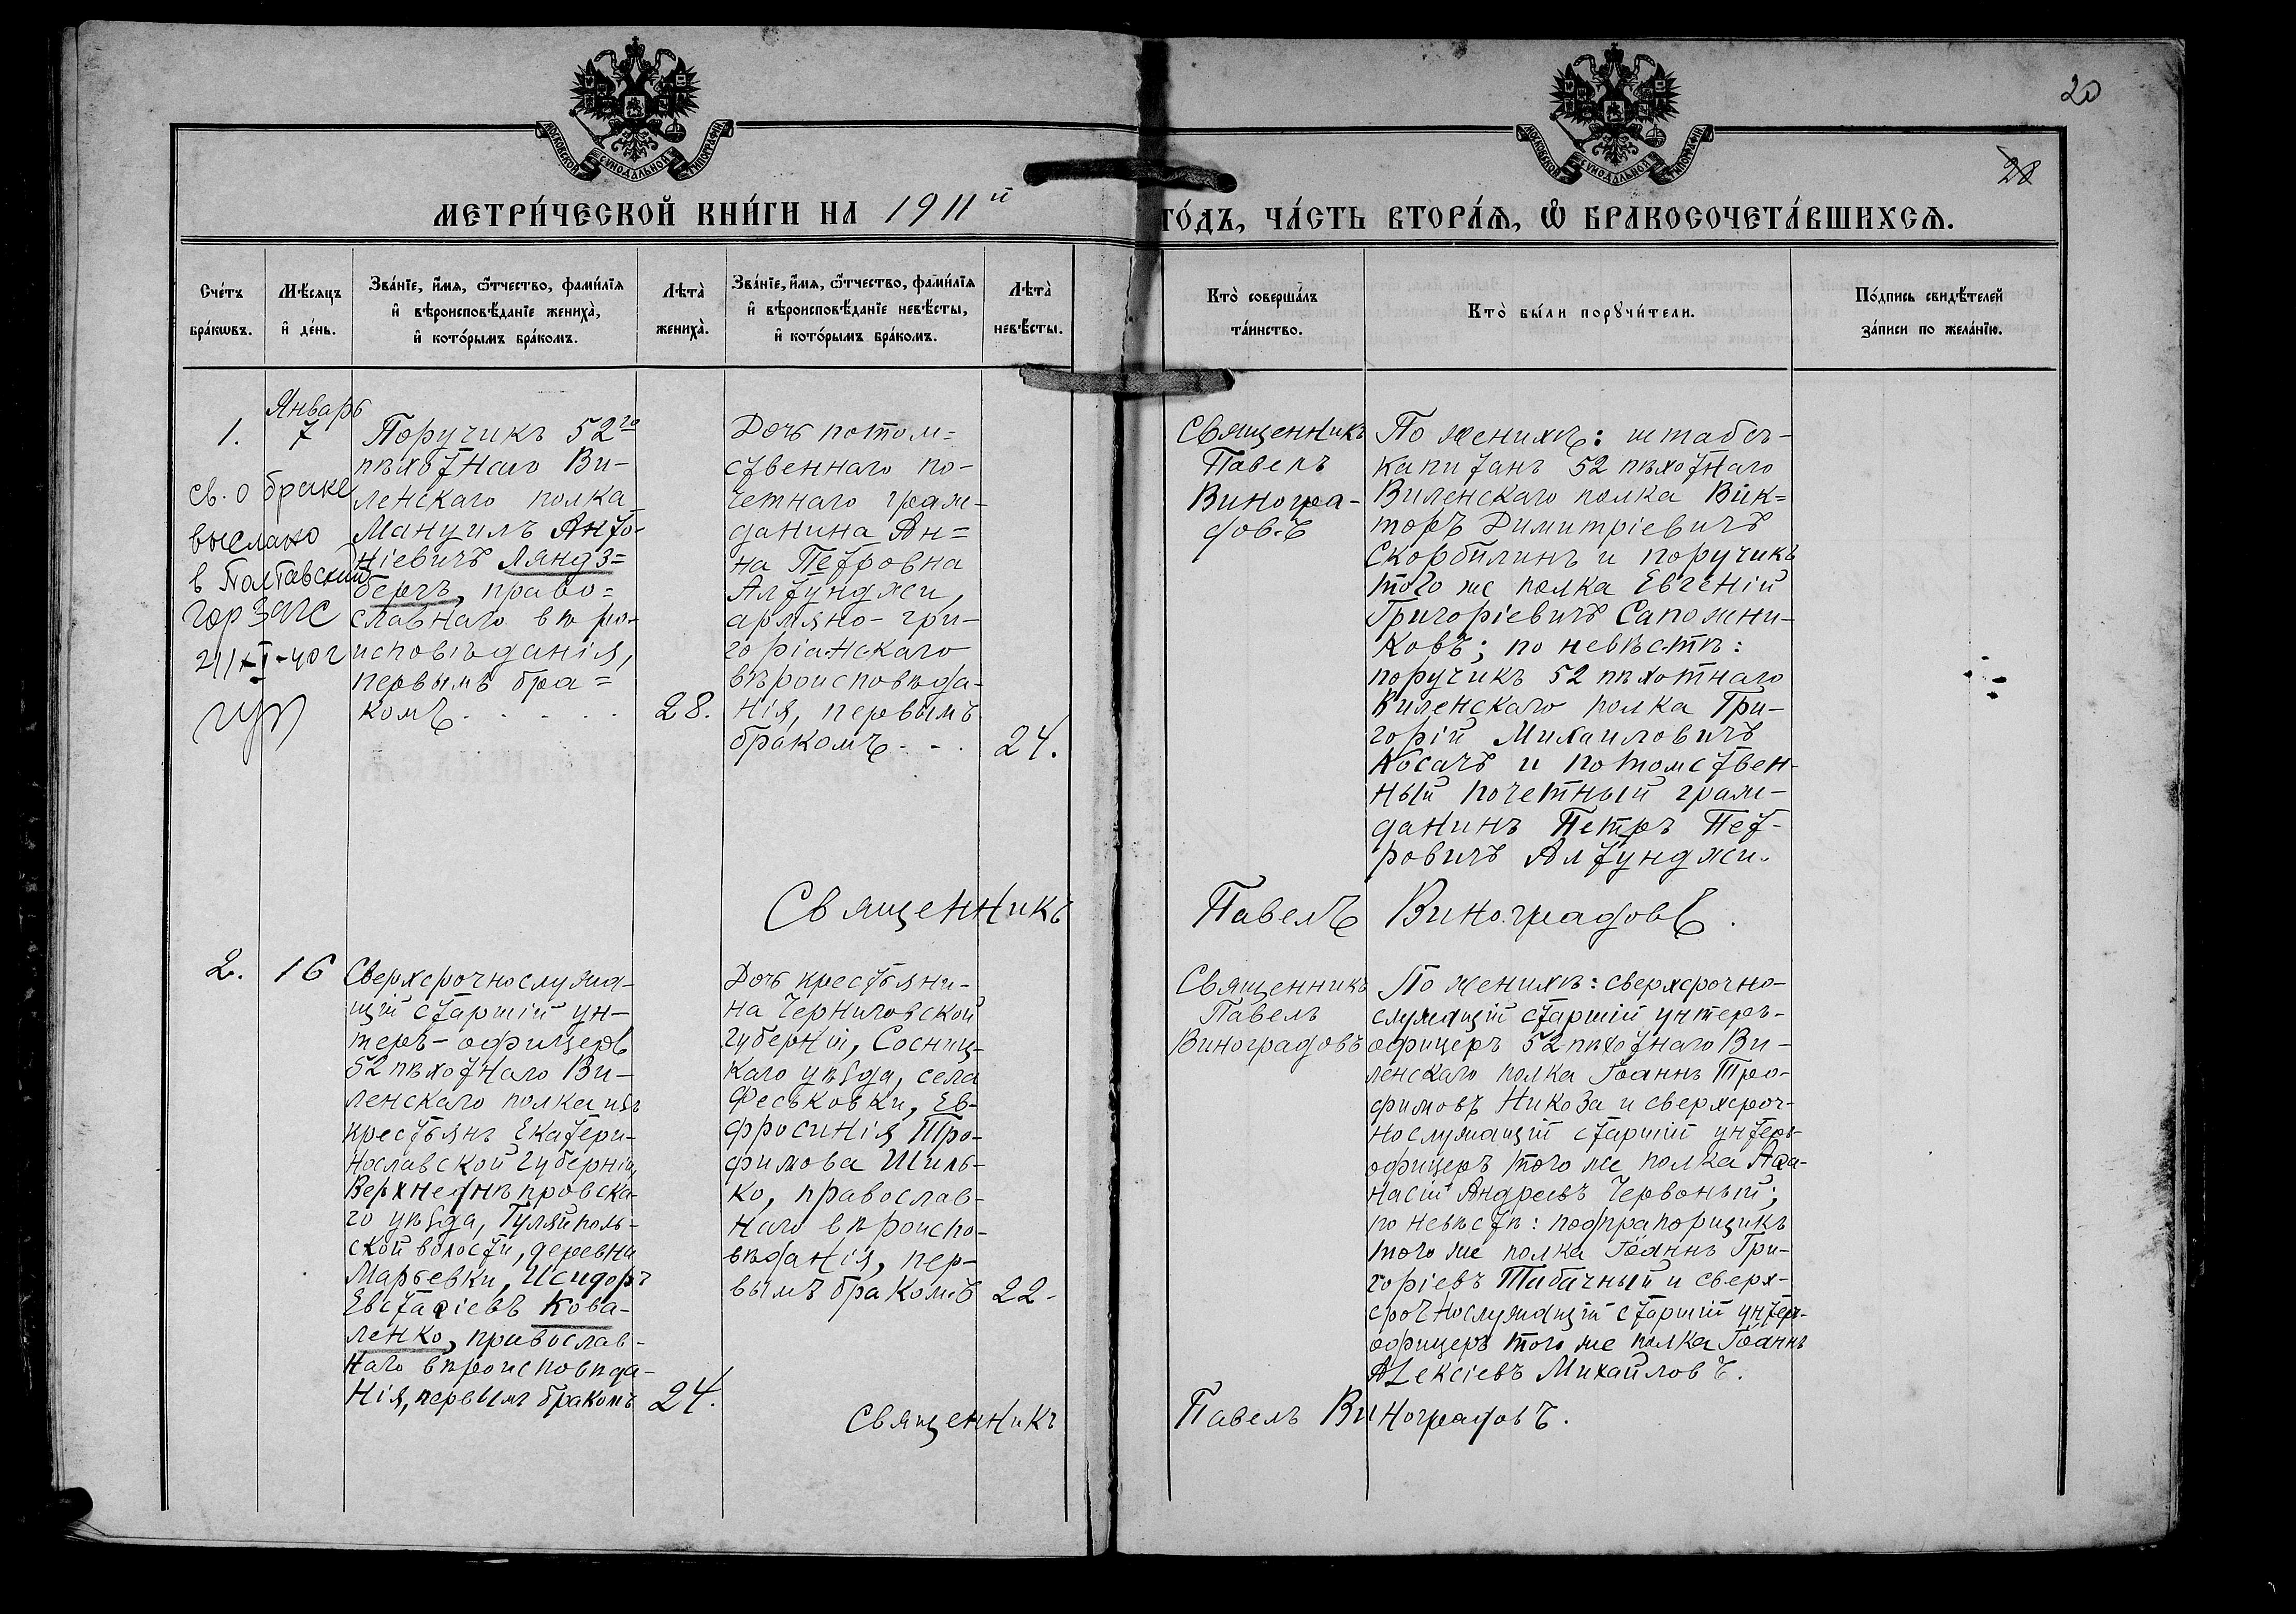 МОСКОВСКОЙ СѴНОДАЛЬНОЙ ТИПОГРАФІИ
МОСКОВСКОЙ СѴНОДАЛЬНОЙ ТИПОГРАФІИ
20
28
МЕТРИ́ЧЕСКОЙ КНИ́ГИ НА 1911й
ГО́ДЪ, ЧА́СТЬ ВТОРА́Ѧ, Ѡ҆ БРАКОСОЧЕТА́ВШИХСѦ.
Сче́тъ
бра́кѡвъ.
Мѣ́сяцъ
и҆ де́нь.
Зва́ніе, и҆́мѧ, ѻ҆́тчество, фами́лїѧ
и҆ вѣроисповѣ́данїе жениха̀,
и҆ кото́рымъ бра́комъ.
Лѣта̀
жениха̀.
Зва́нїе, и҆́мѧ, ѻ҆́тчество, фами́лїѧ
и҆ вѣроисповѣ́данїе невѣ́сты,
и҆ кото́рымъ бра́комъ.
Лѣта̀
невѣ́сты.
Кто̀ соверша́лъ
та́инство.
Кто̀ бы́ли порꙋчи́тели.
По́дпись свидѣ́телей
за́писи по жела́нїю.
1.
Январь
7
св. о браке
выслано
в Полтавский
гор ЗАГС
21/XI-40г
Поручикъ 52го
пѣхотнаго Ви-
ленскаго полка
Мануилъ Анто-
ніевичъ Ляндз=
бергъ, право=
славнаго вѣро-
исповѣданія,
первымъ бра=
комъ . . . . .
28.
Дочь потом=
ственнаго по-
четнаго граж-
данина Ан=
на Петровна
Алтунджи,
армяно-гри-
горіанскаго
вѣроисповѣда-
нія, первымъ
бракомъ . . .
24.
Священникъ
Павелъ
Виногра-
довъ
По женихѣ: штабсъ-
капитанъ 52 пѣхотнаго
Виленскаго полка Вик=
торъ Димитріевичъ
Скорбилинъ и поручикъ
того же полка Евгеній
Григоріевичъ Сапожни-
ковъ; по невѣстѣ:
поручикъ 52 пѣхотнаго
Виленскаго полка Гри-
горій Михаиловичъ
Косачъ и потомствен-
ный почетный граж-
данинъ Петръ Пет-
ровичъ Алтунджи.
Священникъ Павелъ Виноградовъ.
2.
16
Сверхсрочнослужа-
щій старшій ун-
теръ-офицеръ
52 пѣхотнаго Ви-
ленскаго полка изъ
крестьянъ Екатери-
нославской губерніи,
Верхнеднѣпровска-
го уѣзда, Гуляйполь-
ской волости, деревни
Марьевки, Исидоръ
Евстафіевъ Кова-
ленко, православ-
наго вѣроисповѣда-
нія, первымъ бракомъ
24.
Дочь крестьяни-
на Черниговской
губерніи, Сосниц-
каго уѣзда, села
Феськовки, Ев-
фросинія Тро-
фимова Шиль-
ко, православ-
наго вѣроиспо-
вѣданія, пер-
вымъ бракомъ
22-
Священникъ
Павелъ
Виноградовъ
По женихѣ: сверхсрочно-
служащій старшій унтеръ-
офицеръ 52 пѣхотнаго Ви-
ленскаго полка Іоаннъ Тро-
фимовъ Никоза и сверхсроч-
нослужащій старшій унтеръ-
офицеръ того же полка Аѳа-
насій Андреевъ Червоный;
по невѣстѣ: подпрапорщикъ
того же полка Іоаннъ Гри-
горіевъ Табачный и сверх-
срочнослужащій старшій унтеръ-
офицеръ того же полка Іоаннъ
Алексіевъ Михайловъ.
Священникъ Павелъ Виноградовъ.